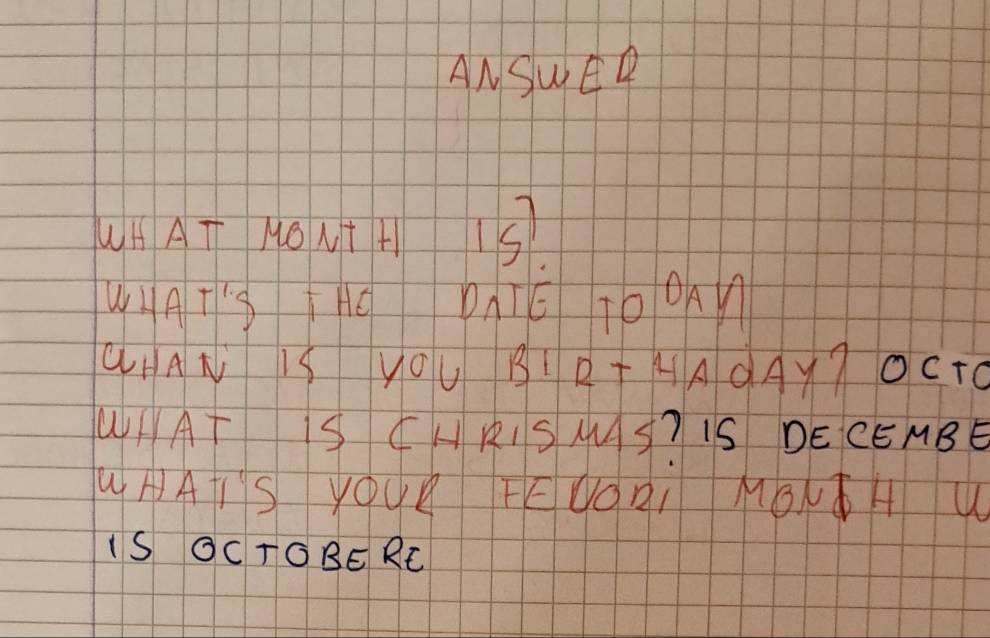 ANSWER
WHAT MONTH IS?
WHAT'S THE DATE TODAY
WHAN IS YOU BIRTHADAY? OCTO
WHAT IS CHRISMAS? IS DECEMBE
WHAT'S YOUR FEVORI MONTH W
IS OCTOBERE